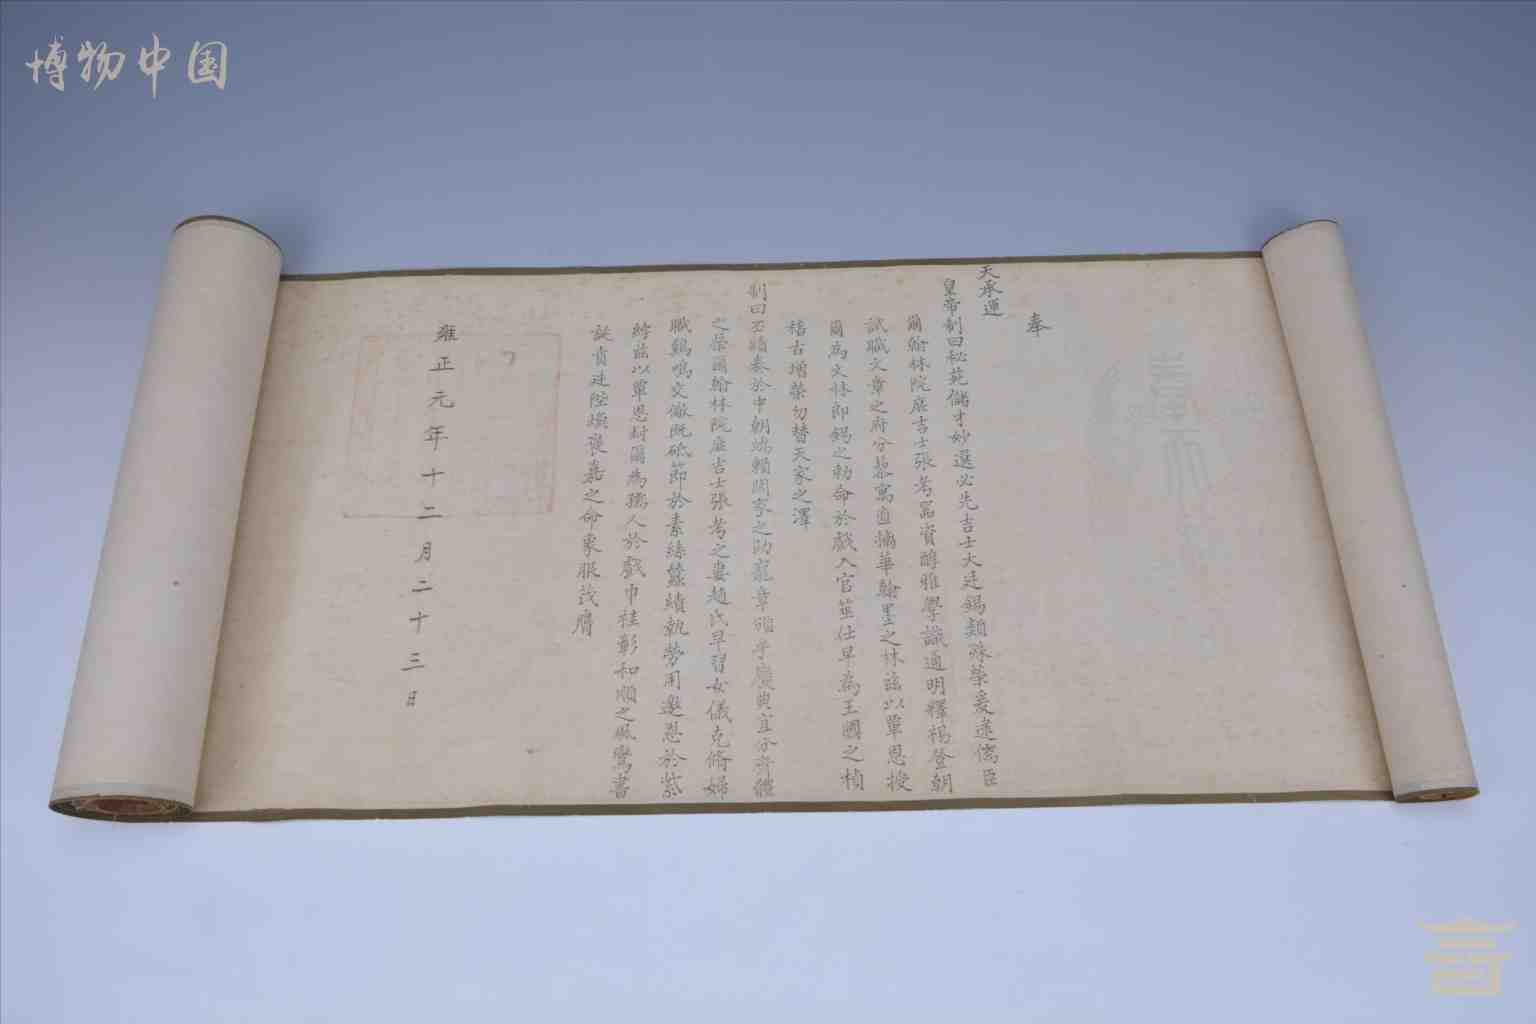 博物中国
奉
天承運
皇帝制曰秘苑儲才妙選必先吉士大廷錫類殊榮爰逮儒臣
爾翰林院庶吉士張考器資醇雅學識通明釋褐登朝
試職文章之府分藜寓直摛華翰墨之林茲以覃恩授
爾為文林郎錫之勅命於戲入官筮仕早為王國之楨
稽古增榮勿替天家之澤
制曰丕績奏於中朝端賴閨家之助寵章頒乎慶典宜分齊體
之榮爾翰林院庶吉士張考之妻趙氏早習女儀克脩婦
職鷄鳴交儆既砥節於素絲蠶績執勞用邀恩於紫
綍茲以覃恩封爾為孺人於戲巾袿彰和順之風鸞書
誕賁廷陛煥褒嘉之命象服茂膺
雍正元年十二月二十三日